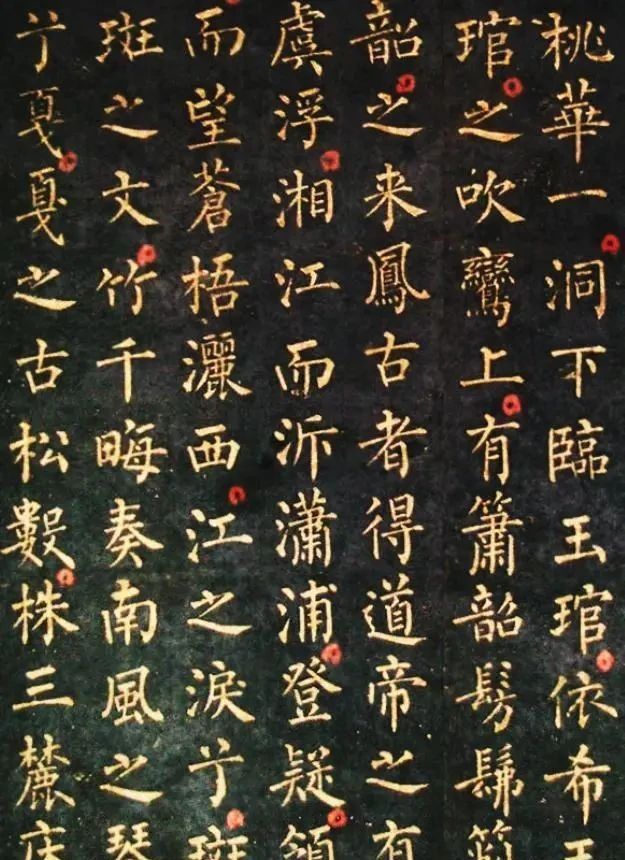 桃華一洞下臨玉琯依希
琯之吹鸞上有簫韶髣髴
韶之来鳳古者得道帝之有
虞浮湘江而泝瀟浦登疑
而望蒼梧灑西江之淚于斑
斑之文竹千畮奏南風之琴
于戛戛之古松數株三麓